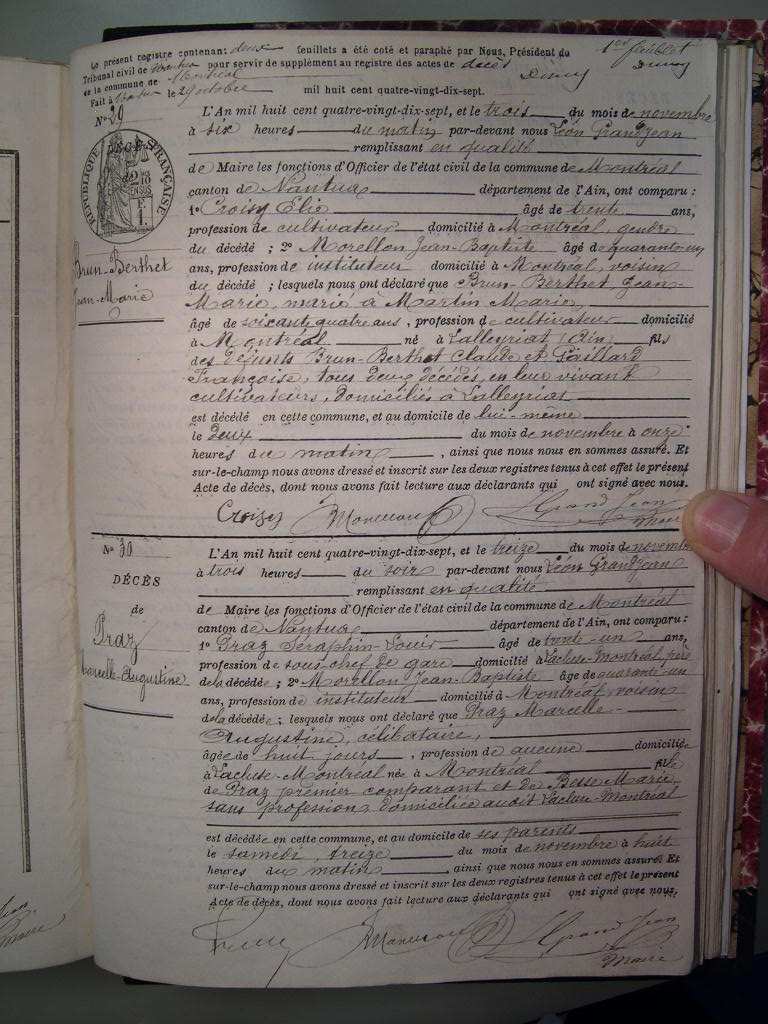 Le présent registre contenant deux feuillets a été coté et paraphé par Nous, Président du
Tribunal civil de Nantua pour servir de supplément au registre des actes de décès
de la commune de Montréal
Fait à Nantua le 29 octobre mil huit cent quatre-vingt-dix-sept.
1er feuillet
N° 29
DÉCÈS
RÉPUBLIQUE FRANÇAISE
Brun-Berthet
Jean-Marie
L'An mil huit cent quatre-vingt-dix-sept, et le trois du mois de novembre
à six heures du matin par-devant nous Léon Grandjean
remplissant en qualité
de Maire les fonctions d'Officier de l'état civil de la commune de Montréal
canton de Nantua département de l'Ain, ont comparu :
1° Croisy Elie âgé de trente ans,
profession de cultivateur domicilié à Montréal, gendre
du décédé ; 2° Morellon Jean-Baptiste âgé de quarante-un
ans, profession de instituteur domicilié à Montréal, voisin
du décédé ; lesquels nous ont déclaré que Brun-Berthet, Jean-
Marie, marié à Martin Marie,
âgé de soixante quatre ans, profession de cultivateur domicilié
à Montréal né à Lalleyriat (Ain) fils
des défunts Brun-Berthet Claude et Gaillard
Françoise, tous deux décédés, en leur vivant
cultivateurs, domiciliés à Lalleyriat
est décédé en cette commune, et au domicile de lui-même
le deux du mois de novembre à onze
heures du matin, ainsi que nous nous en sommes assuré. Et
sur-le-champ nous avons dressé et inscrit sur les deux registres tenus à cet effet le présent
Acte de décès, dont nous avons fait lecture aux déclarants qui ont signé avec nous.
Croisy L. Grand Jean
Maire
N° 30
DÉCÈS
de
Praz
Marcelle-Augustine
L'An mil huit cent quatre-vingt-dix-sept, et le treize du mois de novembre
à trois heures du soir par-devant nous Léon Grandjean
remplissant en qualité
de Maire les fonctions d'Officier de l'état civil de la commune de Montréal
canton de Nantua département de l'Ain, ont comparu :
1° Praz Séraphin-Louis âgé de trente-un ans,
profession de sous-chef de gare domicilié à Lacluse-Montréal, père
de la décédée ; 2° Morellon Jean-Baptiste âgé de quarante-un
ans, profession de instituteur domicilié à Montréal voisin
de la décédée ; lesquels nous ont déclaré que Praz Marcelle-
Augustine, célibataire,
âgée de huit jours, profession de aucune domiciliée
à Lacluse-Montréal née à Montréal fille
de Praz premier comparant et de Besse Marie
sans profession, domiciliée audit Lacluse-Montréal
est décédée en cette commune, et au domicile de ses parents
le samedi, treize du mois de novembre à huit
heures du matin ainsi que nous nous en sommes assuré. Et
sur-le-champ nous avons dressé et inscrit sur les deux registres tenus à cet effet le présent
Acte de décès, dont nous avons fait lecture aux déclarants qui ont signé avec nous.
L. Grand Jean
Maire